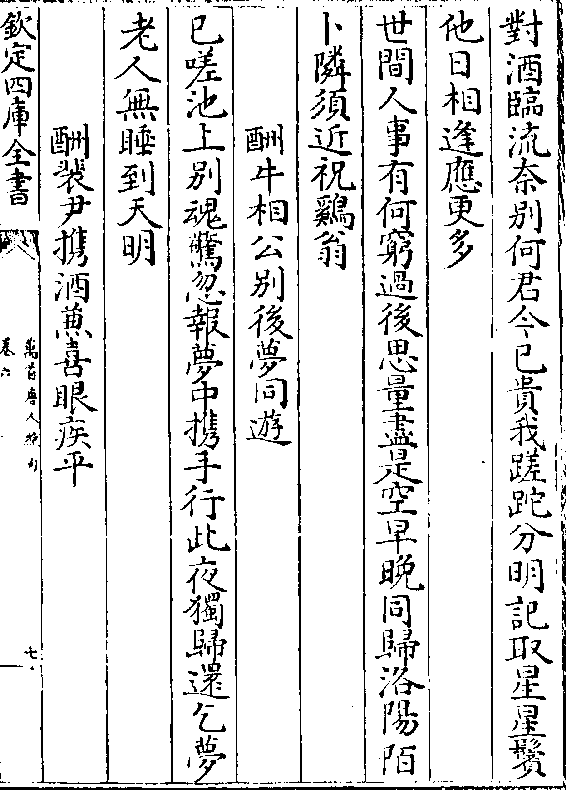 對酒臨流奈别何君今已貴我蹉跎分明記取星星鬢
他日相逢應更多
世間人事有何窮過後思量盡是空早晚同歸洛陽陌
卜隣須近祝鷄翁
酬牛相公别後夢同遊
已嗟池上别魂驚忽報夢中携手行此夜獨歸還乞夢
老人無睡到天明
酬裴尹携酒兼喜眼疾平
欽定四庫全書
萬首唐人絶句
卷六
七